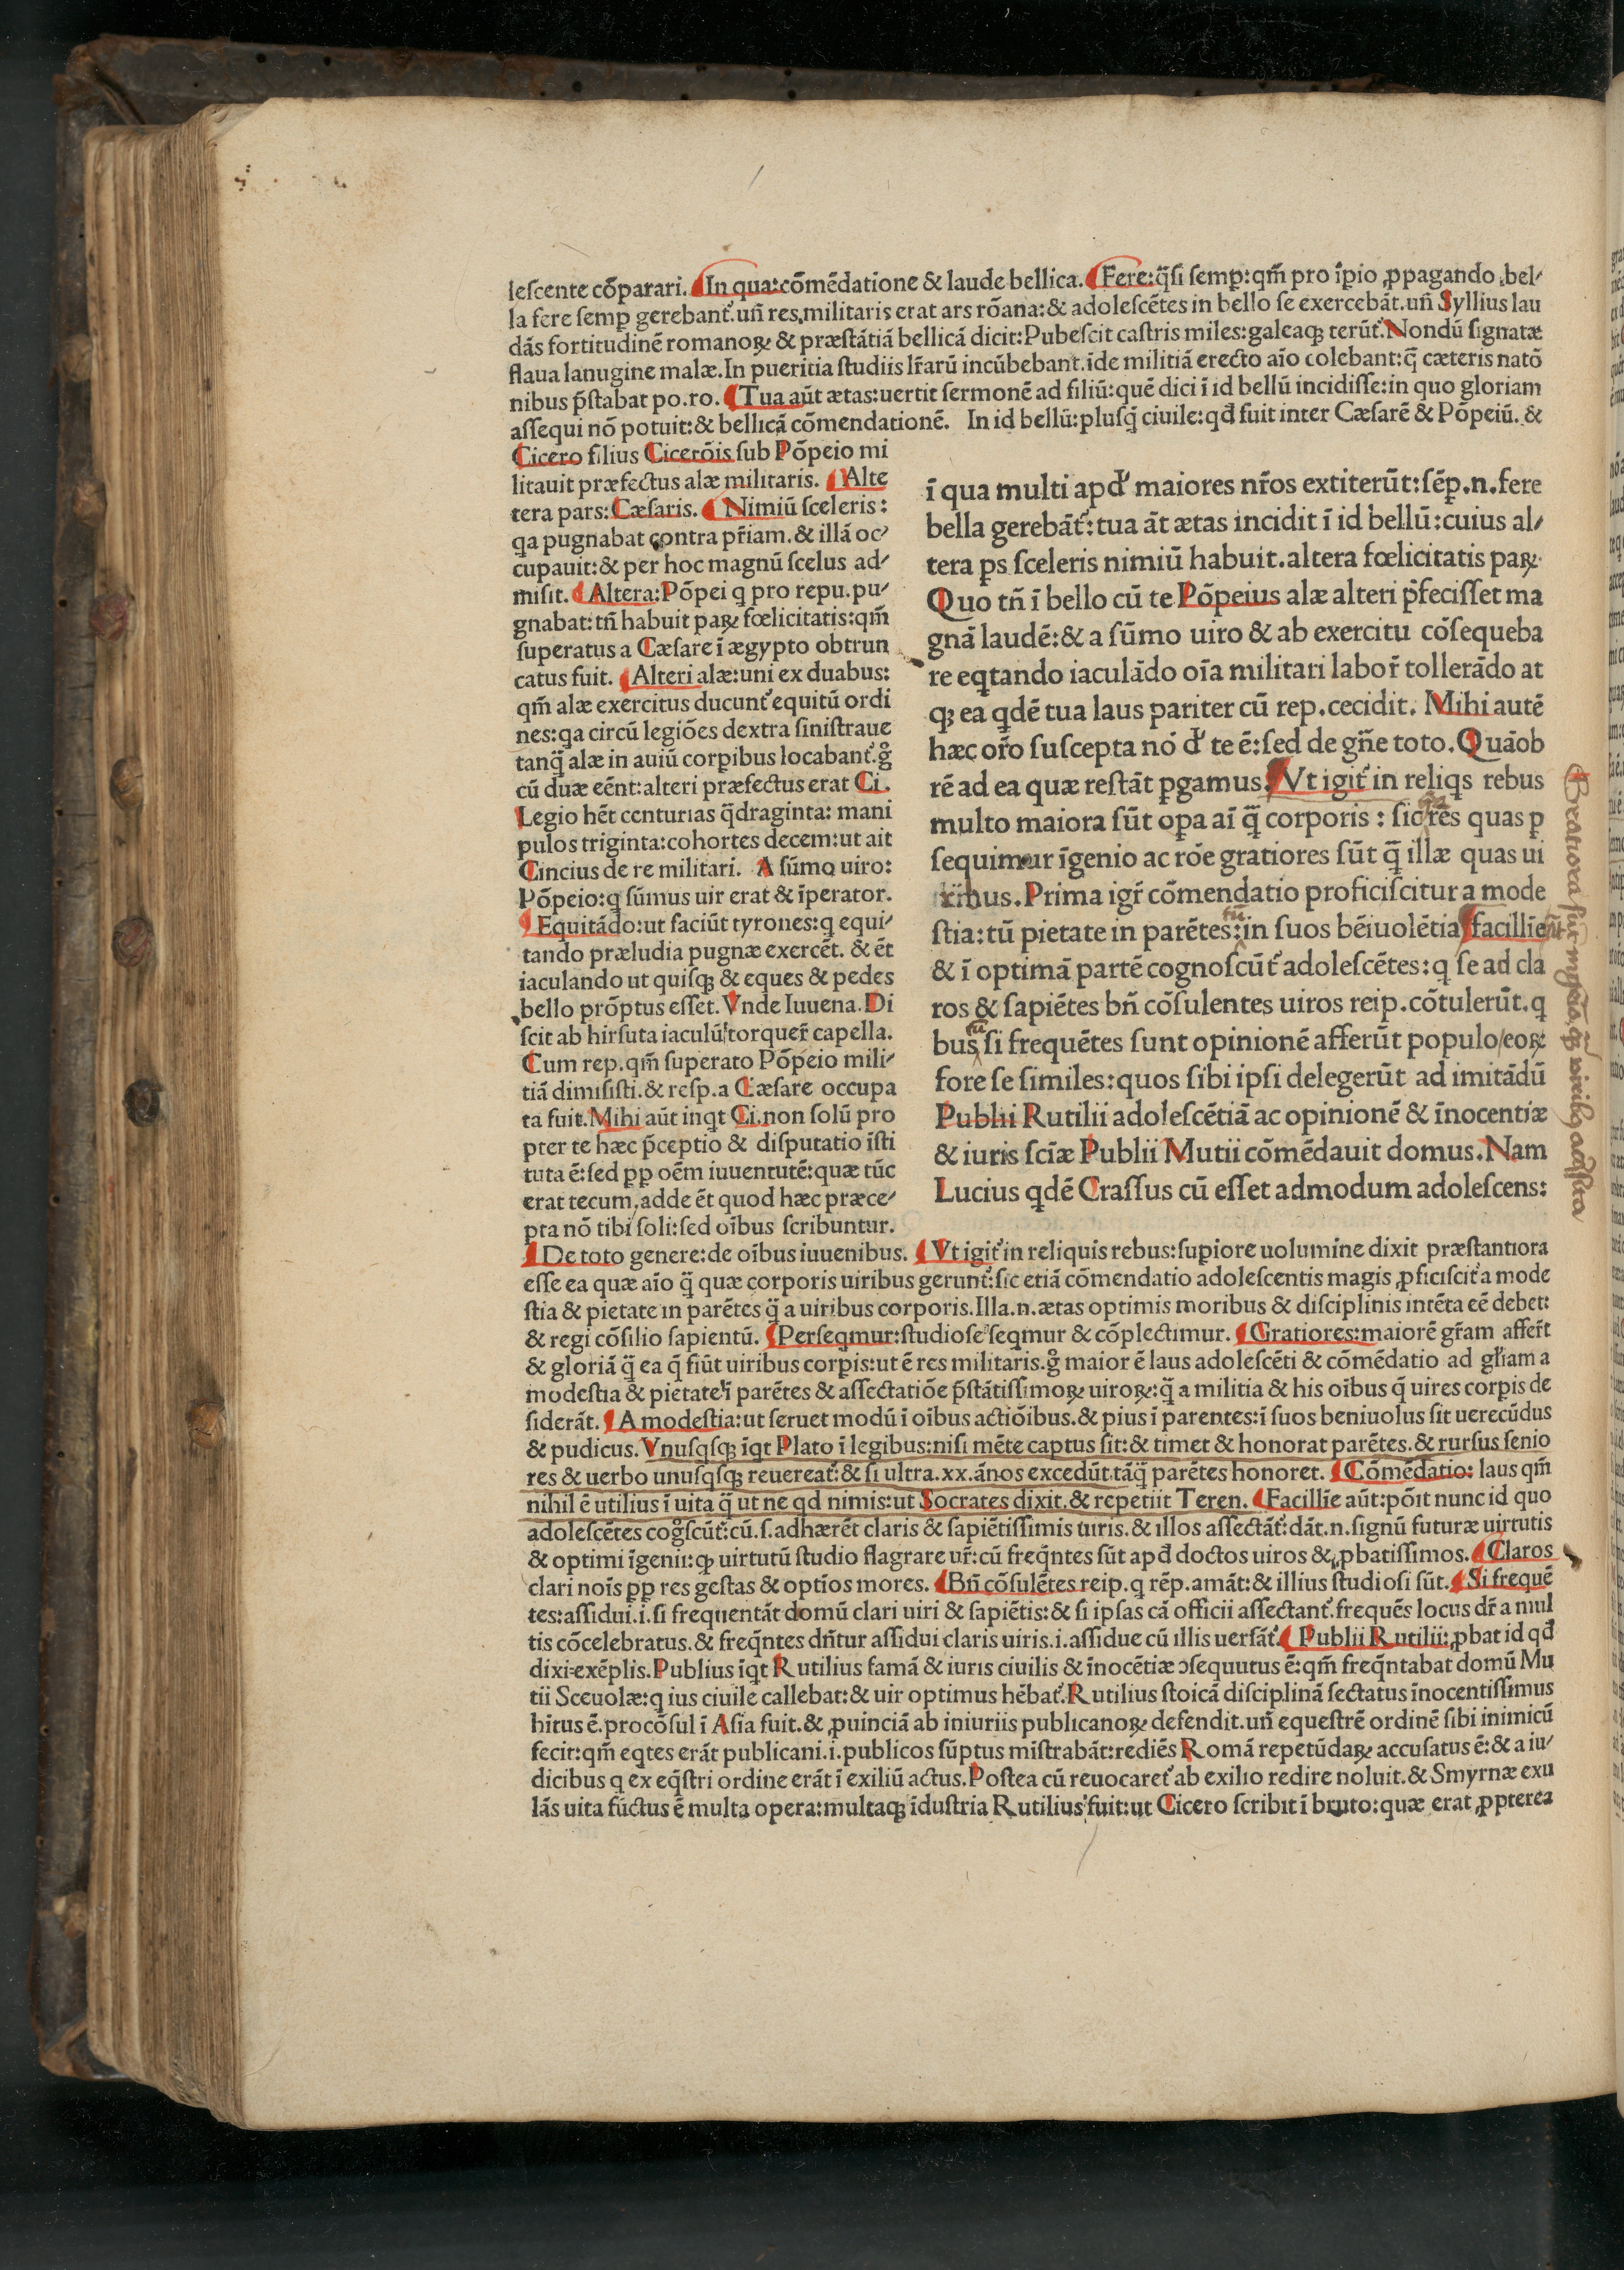 leſcente cõparari. ¶In qua: cõmẽdatione & laude bellica. ¶Fere: q̃ſi ſemp: qm̃ pro ĩpio ꝓpagando bel-
la fere ſemp gerebant᷑. uñ res militaris erat ars rõana: & adoleſcẽtes in bello ſe exercebãt. uñ Syllius lau
dãs fortitudinẽ romanoꝝ & præſtãtiã bellicã dicit: Pubeſcit caſtris miles: galeaqꝫ terũt᷑. Nondũ ſignatæ
flaua lanugine malæ. In pueritia ſtudiis lr̃arũ incũbebant. ĩde militiã erecto aĩo colebant: q̃ cæteris natõ
nibus p̃ſtabat po. ro. ¶Tua aũt ætas: uertit ſermonẽ ad filiũ: quẽ dici ĩ id bellũ incidiſſe: in quo gloriam
aſſequi nõ potuit: & bellicã cõmendationẽ. In id bellũ: pluſq̃ ciuile: qd̃ fuit inter Cæſarẽ & Põpeiũ. &
Cicero filius Cicerõis ſub Põpeio mi
litauit præfectus alæ militaris. ¶Alte
tera pars: Cæſaris. ¶Nimiũ ſceleris:
qa pugnabat contra pr̃iam. & illã oc-
cupauit: & per hoc magnũ ſcelus ad-
miſit. ¶Altera: Põpei q pro repu. pu-
gnabat: tñ habuit paꝝ fœlicitatis: qm̃
ſuperatus a Cæſare ĩ ægypto obtrun
catus fuit. ¶Alteri alæ: uni ex duabus:
qm̃ alæ exercitus ducunt᷑ equitũ ordi
nes: qa circũ legiões dextra ſiniſtraue
tanq̃ alæ in auiũ corpibus locabant᷑. g̊
cũ duæ eẽnt: alteri præfectus erat Ci.
Legio hẽt centurias q̃draginta: mani
pulos triginta: cohortes decem: ut ait
Cincius de re militari. A ſũmo uiro:
Põpeio: q ſũmus uir erat & ĩperator.
¶Equitãdo: ut faciũt tyrones: q equi-
tando præludia pugnæ exercẽt. & ẽt
iaculando ut quiſqꝫ & eques & pedes
bello prõptus eſſet. Vnde Iuuena. Di
ſcit ab hirſuta iaculũ torquer̃ capella.
Cum rep. qm̃ ſuperato Põpeio mili-
tiã dimiſiſti. & reſp. a Cæſare occupa
ta fuit. Mihi aũt inqt Ci. non ſolũ pro
pter te hæc p̃ceptio & diſputatio ĩſti
tuta ẽ: ſed pp oẽm iuuentutẽ: quæ tũc
erat tecum, adde ẽt quod hæc præce-
pta nõ tibi ſoli: ſed oĩbus ſcribuntur.
ĩ qua multi apd᷑ maiores nr̃os extiterũt: ſẽp. n. fere
bella gerebãt᷑: tua ãt ætas incidit ĩ id bellũ: cuius al-
tera ps ſceleris nimiũ habuit. altera fœlicitatis paꝝ.
Quo tñ ĩ bello cũ te Põpeius alæ alteri p̃feciſſet ma
gnã laudẽ: & a ſũmo uiro & ab exercitu cõſequeba
re eqtando iaculãdo oĩa militari labor̃ tollerãdo at
qꝫ ea qdẽ tua laus pariter cũ rep. cecidit. Mihi autẽ
hæc or̃o ſuſcepta nõ d᷑ te ẽ: ſed de gñe toto. Quãob
rẽ ad ea quæ reſtãt pgamus. ¶Vt igit᷑ in reliqs rebus
multo maiora ſũt opa aĩ q̃ corporis: ſic rẽs quas p
ſequimur ĩgenio ac rõe gratiores ſũt q̃ illæ quas ui
ribus. Prima igr̃ cõmendatio proficiſcitur a mode
ſtia: tũ pietate in parẽtes: in ſuos bẽiuolẽtia ¶facilliẽ
& ĩ optimã partẽ cognoſcũt᷑ adoleſcẽtes: q ſe ad cla
ros & ſapiẽtes bñ cõſulentes uiros reip. cõtulerũt. q
bus ſi frequẽtes ſunt opinionẽ afferũt populo/ eoꝝ
fore ſe ſimiles: quos ſibi ipſi delegerũt ad imitãdũ
Publii Rutilii adoleſcẽtiã ac opinionẽ & ĩnocentiæ
& iuris ſcĩæ Publii Mutii cõmẽdauit domus. Nam
Lucius qdẽ Craſſus cũ eſſet admodum adoleſcens:
¶De toto genere: de oĩbus iuuenibus. ¶Vt igit᷑ in reliquis rebus: ſupiore uolumine dixit præſtantiora
eſſe ea quæ aĩo q̃ quæ corporis uiribus gerunt᷑: ſic etiã cõmendatio adoleſcentis magis ꝓficiſcit᷑ a mode
ſtia & pietate in parẽtes q̃ a uiribus corporis. Illa. n. ætas optimis moribus & diſciplinis intẽta eẽ debet:
& regi cõſilio ſapientũ. ¶Perſeqmur: ſtudioſe ſeqmur & cõplectimur. ¶Gratiores: maiorẽ gr̃am affer̃t
& gloriã q̃ ea q̃ fiũt uiribus corpis: ut ẽ res militaris. g̊ maior ẽ laus adoleſcẽti & cõmẽdatio ad gl̃iam a
modeſtia & pietate ĩ parẽtes & aſſectatiõe p̃ſtãtiſſimoꝝ uiroꝝ: q̃ a militia & his oĩbus q̃ uires corpis de
ſiderãt. ¶A modeſtia: ut ſeruet modũ ĩ oĩbus actiõibus. & pius ĩ parentes: ĩ ſuos beniuolus ſit uerecũdus
& pudicus. Vnuſqſqꝫ ĩqt Plato ĩ legibus: niſi mẽte captus ſit: & timet & honorat parẽtes. & rurſus ſenio
res & uerbo unuſqſqꝫ reuereat᷑: & ſi ultra. xx. ãnos excedũt tãq̃ parẽtes honoret. ¶Cõmẽdatio: laus qm̃
nihil ẽ utilius ĩ uita q̃ ut ne qd nimis: ut Socrates dixit. & repetiit Teren. ¶Facilliẽ aũt: põit nunc id quo
adoleſcẽtes cog̊ſcũt᷑: cũ. ſ. adhærẽt claris & ſapiẽtiſſimis uiris. & illos aſſectãt᷑: dãt. n. ſignũ futuræ uirtutis
& optimi ĩgenii: qꝫ uirtutũ ſtudio flagrare ur̃: cũ freq̃ntes ſũt apd̃ doctos uiros & ꝓbatiſſimos. ¶Claros
clari noĩs pp res geſtas & optĩos mores. ¶Bñ cõſulẽtes reip. q rẽp. amãt: & illius ſtudioſi ſũt. ¶Si frequẽ
tes: aſſidui. i. ſi frequentãt domũ clari uiri & ſapiẽtis: & ſi ipſas cã officii aſſectant᷑. frequẽs locus dr̃ a mul
tis cõcelebratus. & freq̃ntes dñtur aſſidui claris uiris. i. aſſidue cũ illis uerſãt᷑. ¶Publii Rutilii: ꝓbat id qd̃
dixi: exẽplis. Publius ĩqt Rutilius famã & iuris ciuilis & ĩnocẽtiæ ɔſequutus ẽ: qm̃ freq̃ntabat domũ Mu
tii Sceuolæ: q ius ciuile callebat: & uir optimus hẽbat᷑. Rutilius ſtoicã diſciplinã ſectatus ĩnocentiſſimus
hitus ẽ. procõſul ĩ Aſia fuit. & ꝓuinciã ab iniuriis publicanoꝝ defendit. uñ equeſtrẽ ordinẽ ſibi inimicũ
fecit: qm̃ eqtes erãt publicani. i. publicos ſũptus miſtrabãt: rediẽs Romã repetũdaꝝ accuſatus ẽ: & a iu-
dicibus q ex eq̃ſtri ordine erãt ĩ exiliũ actus. Poſtea cũ reuocaret᷑ ab exilio redire noluit. & Smyrnæ exu
lãs uita fũctus ẽ multa opera: multaqꝫ ĩduſtria Rutilius fuit: ut Cicero ſcribit ĩ bruto: quæ erat ꝓpterea